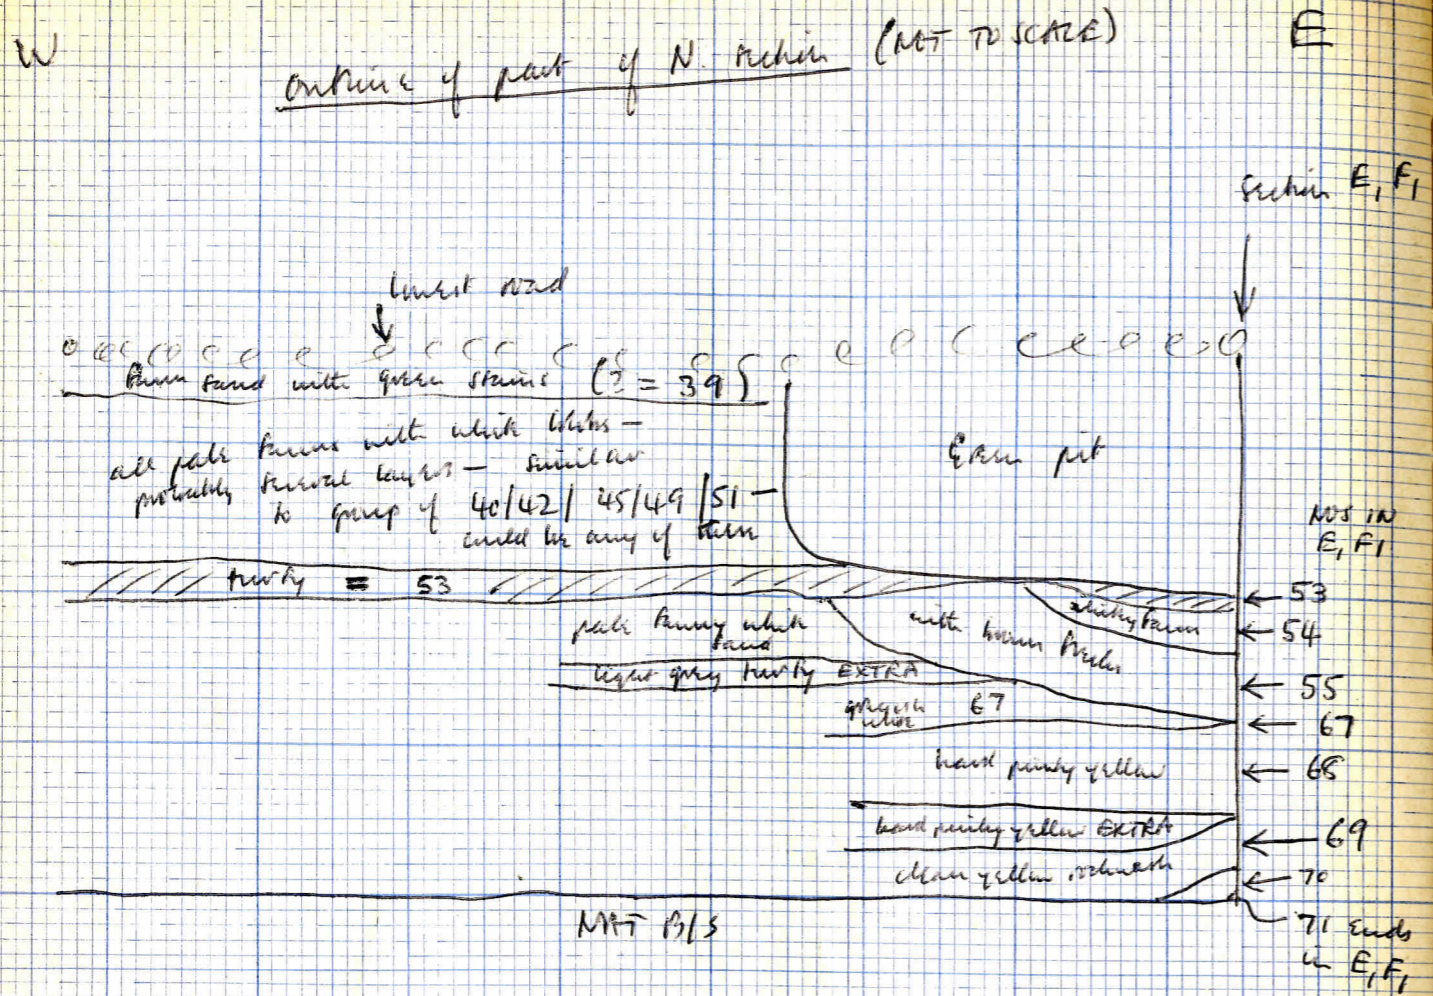 W
E
Outline of part of N. section (NOT TO SCALE)
Section E, F,
lowest road
fawn sand with green stains (? = 39)
all pale fawns with white blobs —
probably several layers — similar
to group of 40/42/45/49/51 —
could be any of these
Green pit
NOS IN
E, F,
turfy = 53
53
whitey fawn
54
pale fawny white
sand
with brown flecks
light grey turfy EXTRA
55
greyish
white
67
67
hard pinky yellow
68
hard pinky yellow EXTRA
69
clean yellow rockwash
70
NAT B/S
71 ends
in E, F,